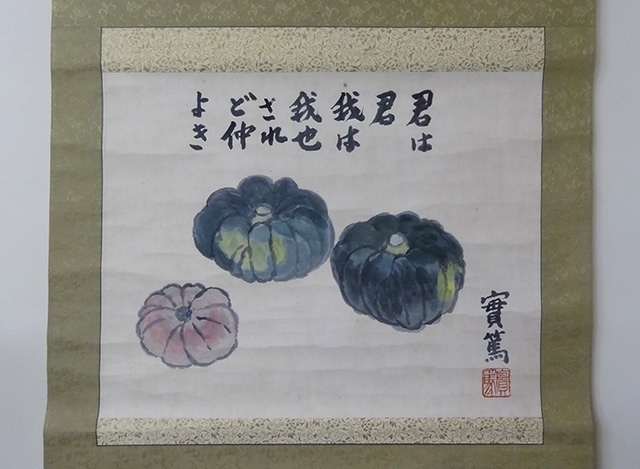 君は
君
我は
我也
され
ど仲
よき
實篤